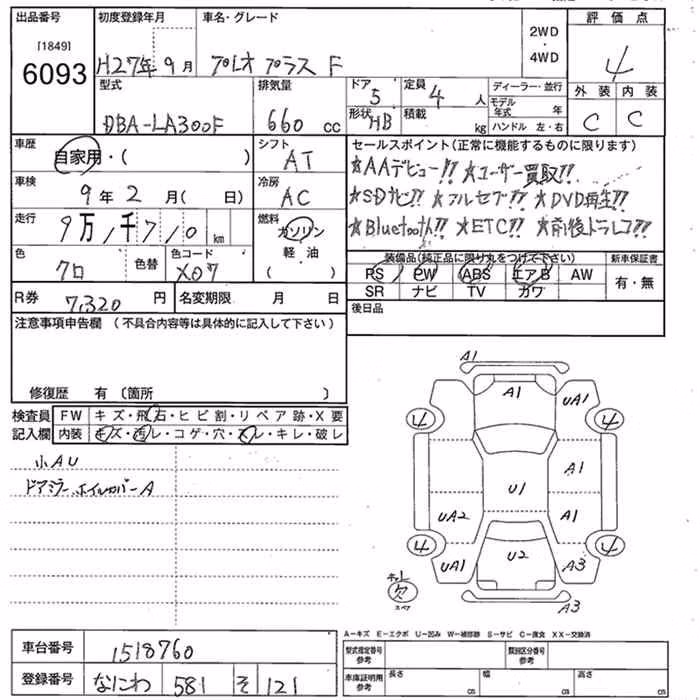 出品番号 初度登録年月 車名・グレード 2WD・4WD 評価点
[1849]
6093 H27年9月 プレオプラス F 4
型式 排気量 ドア 5 定員 4人 ディーラー・並行 外装 内装
DBA-LA300F 660cc 形状 HB 積載 kg モデル年式 年 ハンドル 左・右 C C
車歴 自家用・( ) シフト AT セールスポイント(正常に機能するものに限ります)
☆AAデビュー!! ☆ユーザー買取!!
車検 9年2月( 日) 冷房 AC ☆SDナビ!! ☆フルセグ!! ☆DVD再生!!
走行 9万,1千7,0 km 燃料 ガソリン 軽・油 ( ) ☆Bluetooth!! ☆ETC!! ☆前後ドラレコ!!
色 クロ 色替 色コード X07 装備品(純正品に限り丸をつけて下さい) 新車保証書
PS PW ABS エアB AW 有・無
R券 7,320円 名変期限 月 日 SR ナビ TV カワ
注意事項申告欄(不具合内容等は具体的に記入して下さい) 後日品
修復歴 有(箇所 )
検査員記入欄 FW キズ・飛石・ヒビ割・リペア跡・X要
内装 キズ・汚レ・コゲ・穴・スレ・キレ・破レ
小AU
ドアミラー ホイルカバーA
A1
A1 UA1
4 4
A1
U1
UA2 A1
4 4
U2
UA1 A3
欠
スペア
A3
A-キズ E-エクボ U-凹み W-補修跡 S-サビ C-腐食 XX-交換済
車台番号 1518760 型式指定番号 参考 類別区分番号 参考
登録番号 なにわ 581 そ 121 車庫証明用 参考 長さ cm 幅 cm 高さ cm